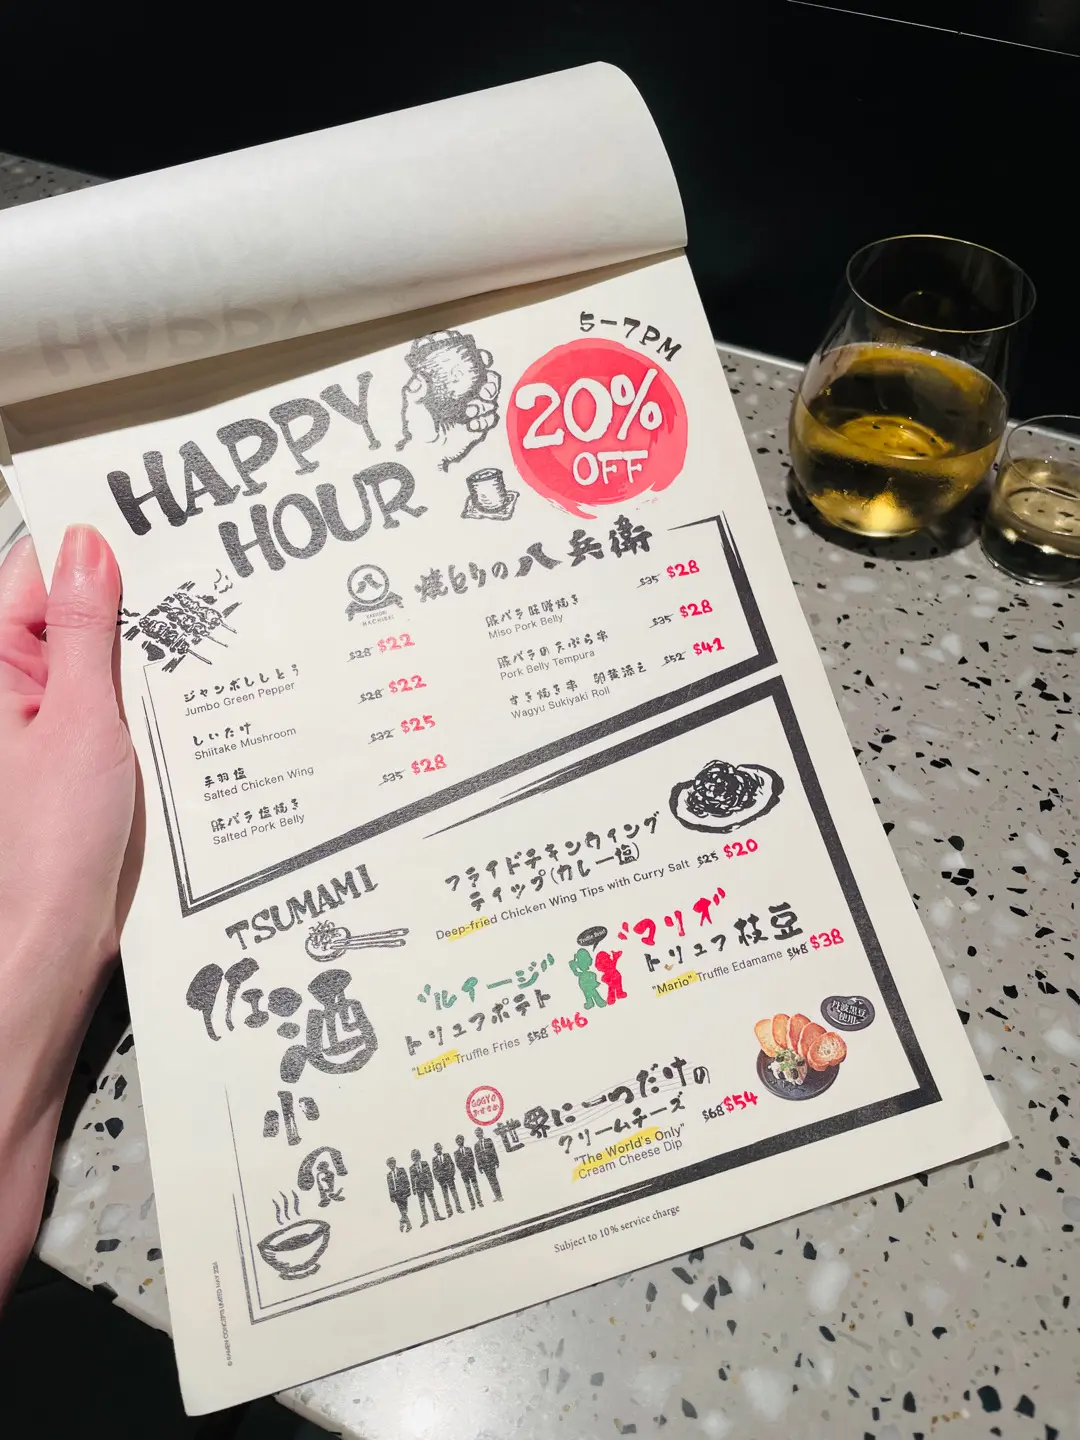 HAPPY
HOUR
5-7PM
20%
OFF
八
焼とりの八兵衛
ジャンボししとう
$28 $22
Jumbo Green Pepper
しいたけ
$28 $22
Shiitake Mushroom
手羽塩
$32 $25
Salted Chicken Wing
豚バラ塩焼き
$35 $28
Salted Pork Belly
豚バラ味噌焼き
$35 $28
Miso Pork Belly
豚バラの天ぷら串
$35 $28
Pork Belly Tempura
すき焼き串 卵黄添え
$52 $41
Wagyu Sukiyaki Roll
TSUMAMI
佐酒
小
食
フライドチキンウィング
ティップ(カレー塩)
Deep-fried Chicken Wing Tips with Curry Salt $25 $20
"マリオ"
トリュフ枝豆
"Mario" Truffle Edamame $48 $38
"ルイージ"
トリュフポテト
"Luigi" Truffle Fries $58 $46
丹波黒豆
使用
GOGYO
おすすめ
世界に一つだけの
クリームチーズ
$68 $54
"The World's Only"
Cream Cheese Dip
Subject to 10% service charge